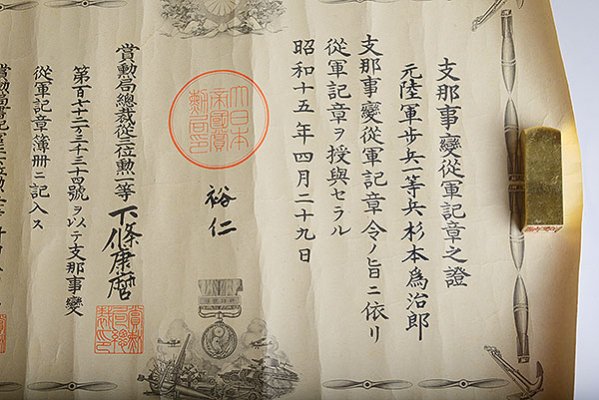 支那事變從軍記章之證
元陸軍歩兵一等兵杉本爲治郎
支那事變從軍記章令ノ旨ニ依リ
從軍記章ヲ授與セラル
昭和十五年四月二十九日
大日本帝國賞勲局印
裕仁
賞勲局總裁從三位勲一等下條康麿
第百七十二万三千三十四號ヲ以テ支那事變
從軍記章簿册ニ記入ス
賞勲局書記官